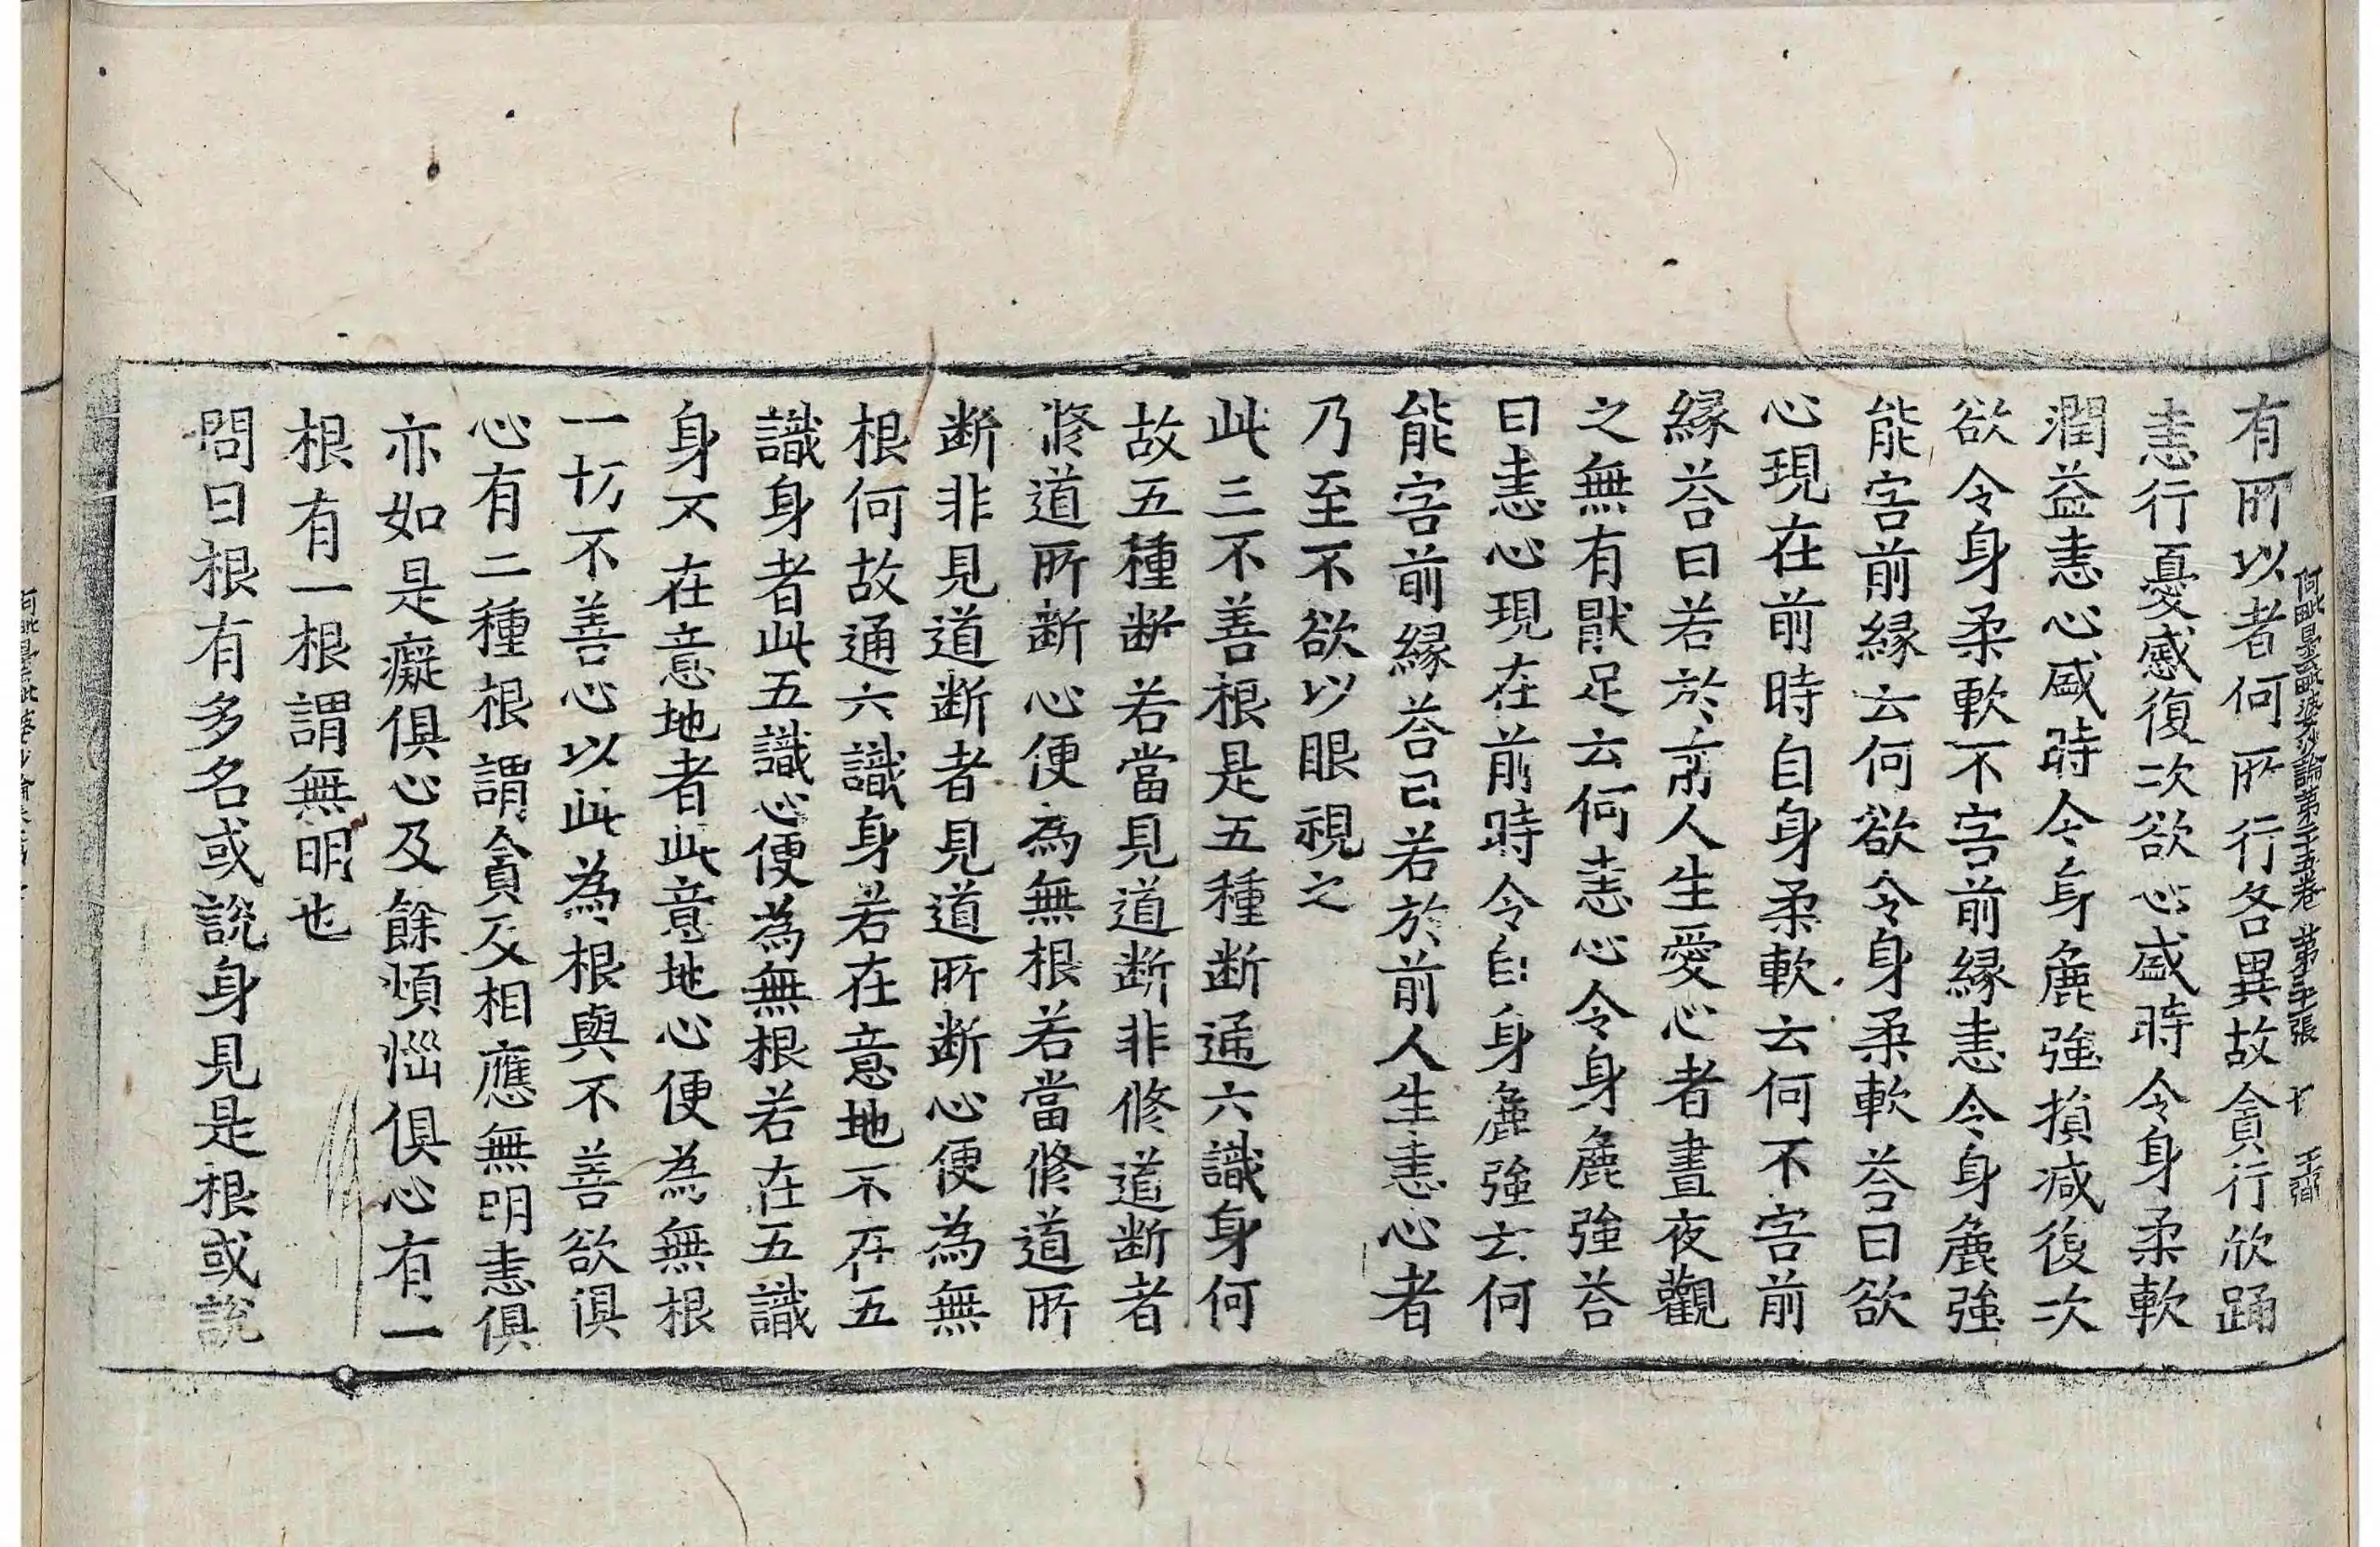 阿毗曇毗婆沙論第二十五卷 第三張 十 王彌
有所以者何所行各異故貪行欣踊
恚行憂慼復次欲心盛時令身柔軟
潤益恚心盛時令身麁強損減復次
欲令身柔軟不害前緣恚令身麁強
能害前緣云何欲令身柔軟荅曰欲
心現在前時自身柔軟云何不害前
緣荅曰若於前人生愛心者晝夜觀
之無有猒足云何恚心令身麁強荅
曰恚心現在前時令自身麁強云何
能害前緣荅曰若於前人生恚心者
乃至不欲以眼視之
此三不善根是五種斷通六識身何
故五種斷若當見道斷非修道斷者
修道所斷心便為無根若當修道所
斷非見道斷者見道所斷心便為無
根何故通六識身若在意地不在五
識身者此五識心便為無根若在五識
身不在意地者此意地心便為無根
一切不善心以此為根與不善欲俱
心有二種根謂貪及相應無明恚俱
亦如是癡俱心及餘煩惱俱心有一
根有一根謂無明也
問曰根有多名或說身見是根或說